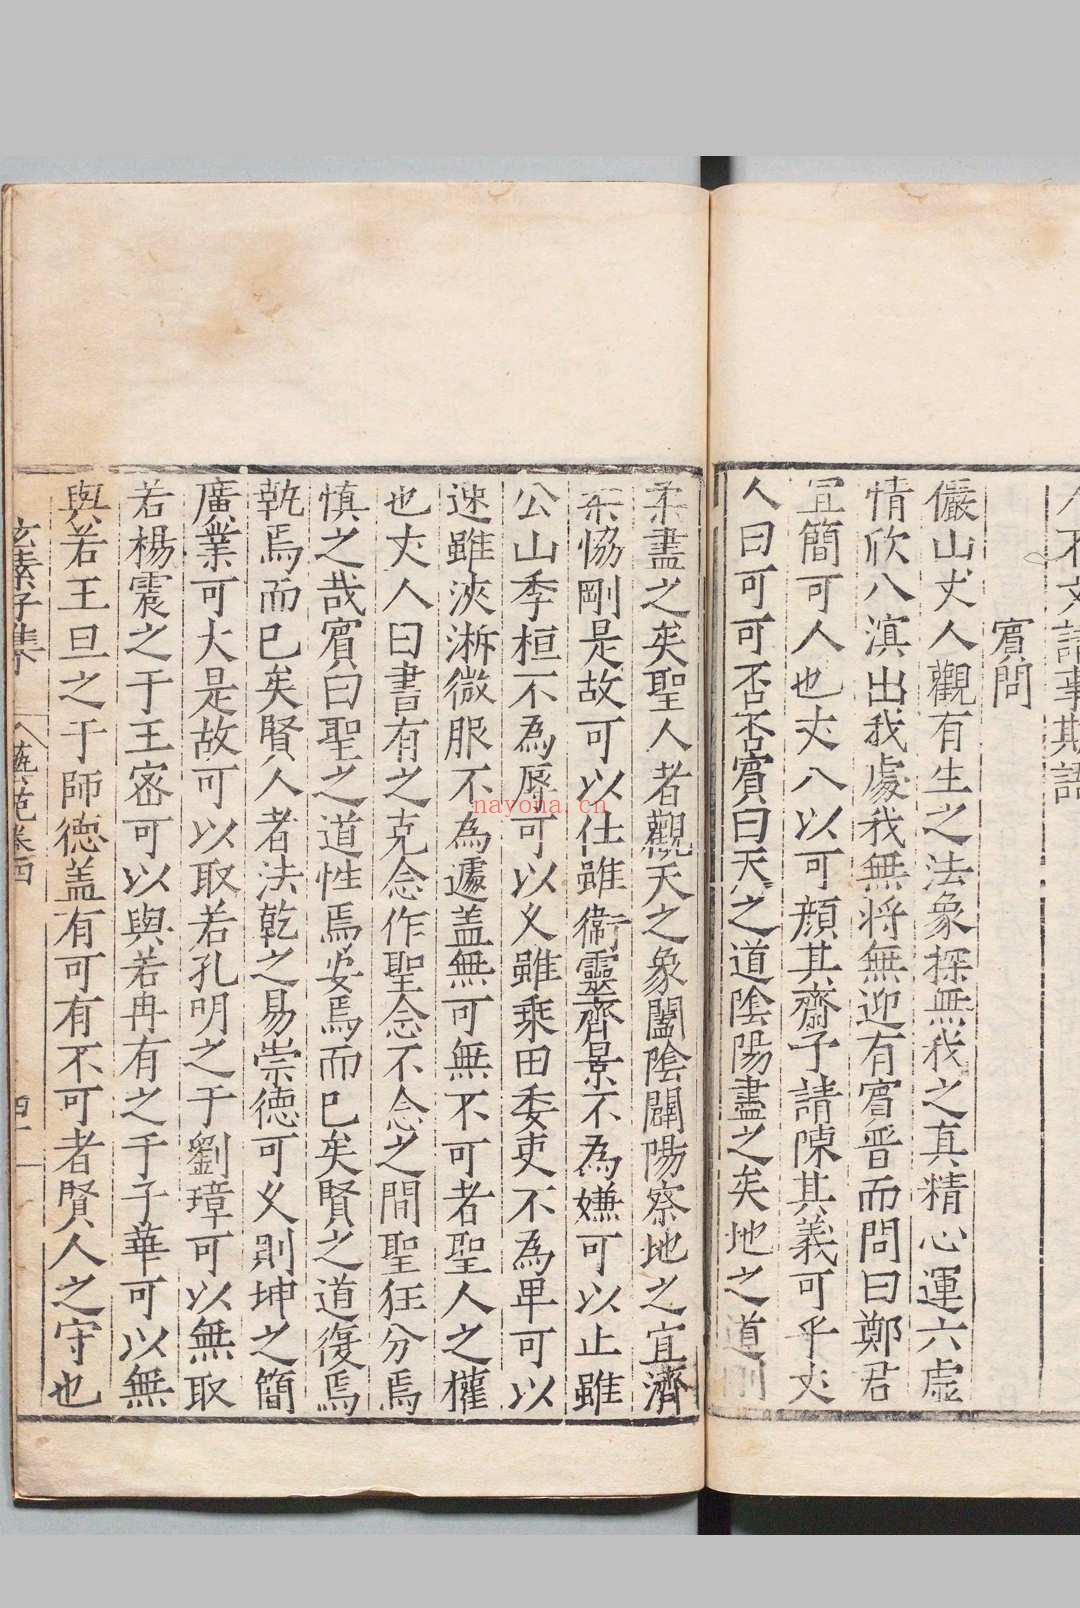 人不文請事斯語
賓問
儼山丈人觀有生之法象探無我之真精心運六虛
情欣八滇出我處我無將無迎有賓晉而問曰鄭君
宜簡可人也丈人以可顏其齋予請陳其義可乎丈
人曰可可否否賓曰天之道陰陽盡之矣地之道剛
柔盡之矣聖人者觀天之象闔陰闢陽察地之宜濟
柔恊剛是故可以仕雖衛靈齊景不為嫌可以止雖
公山季桓不為辱可以乆雖乘田委吏不為卑可以
速雖浹淅微服不為遽盖無可無不可者聖人之權
也丈人曰書有之克念作聖念不念之間聖狂分焉
慎之哉賓曰聖之道性焉安焉而已矣賢之道復焉
執焉而已矣賢人者法乾之易崇德可乆則坤之簡
廣業可大是故可以取若孔明之于劉璋可以無取
若楊震之于王宻可以與若冉有之于子華可以無
與若王旦之于師德盖有可有不可者賢人之守也
玄素子集
蓝范卷四
四十一
nayona.cn